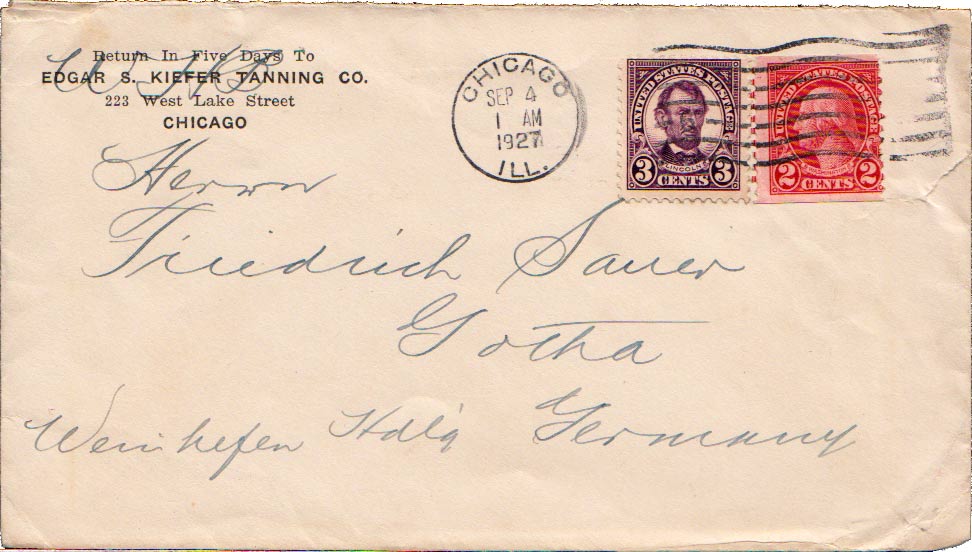 Return In Five Days To
EDGAR S. KIEFER TANNING CO.
223 West Lake Street
CHICAGO
CHICAGO
SEP 4
1 AM
1927
ILL.
UNITED STATES POSTAGE
LINCOLN
3 CENTS 3
UNITED STATES POSTAGE
WASHINGTON
2 CENTS 2
Herrn
Friedrich Sauer
Gotha
Weinhefen Hdlg Germany